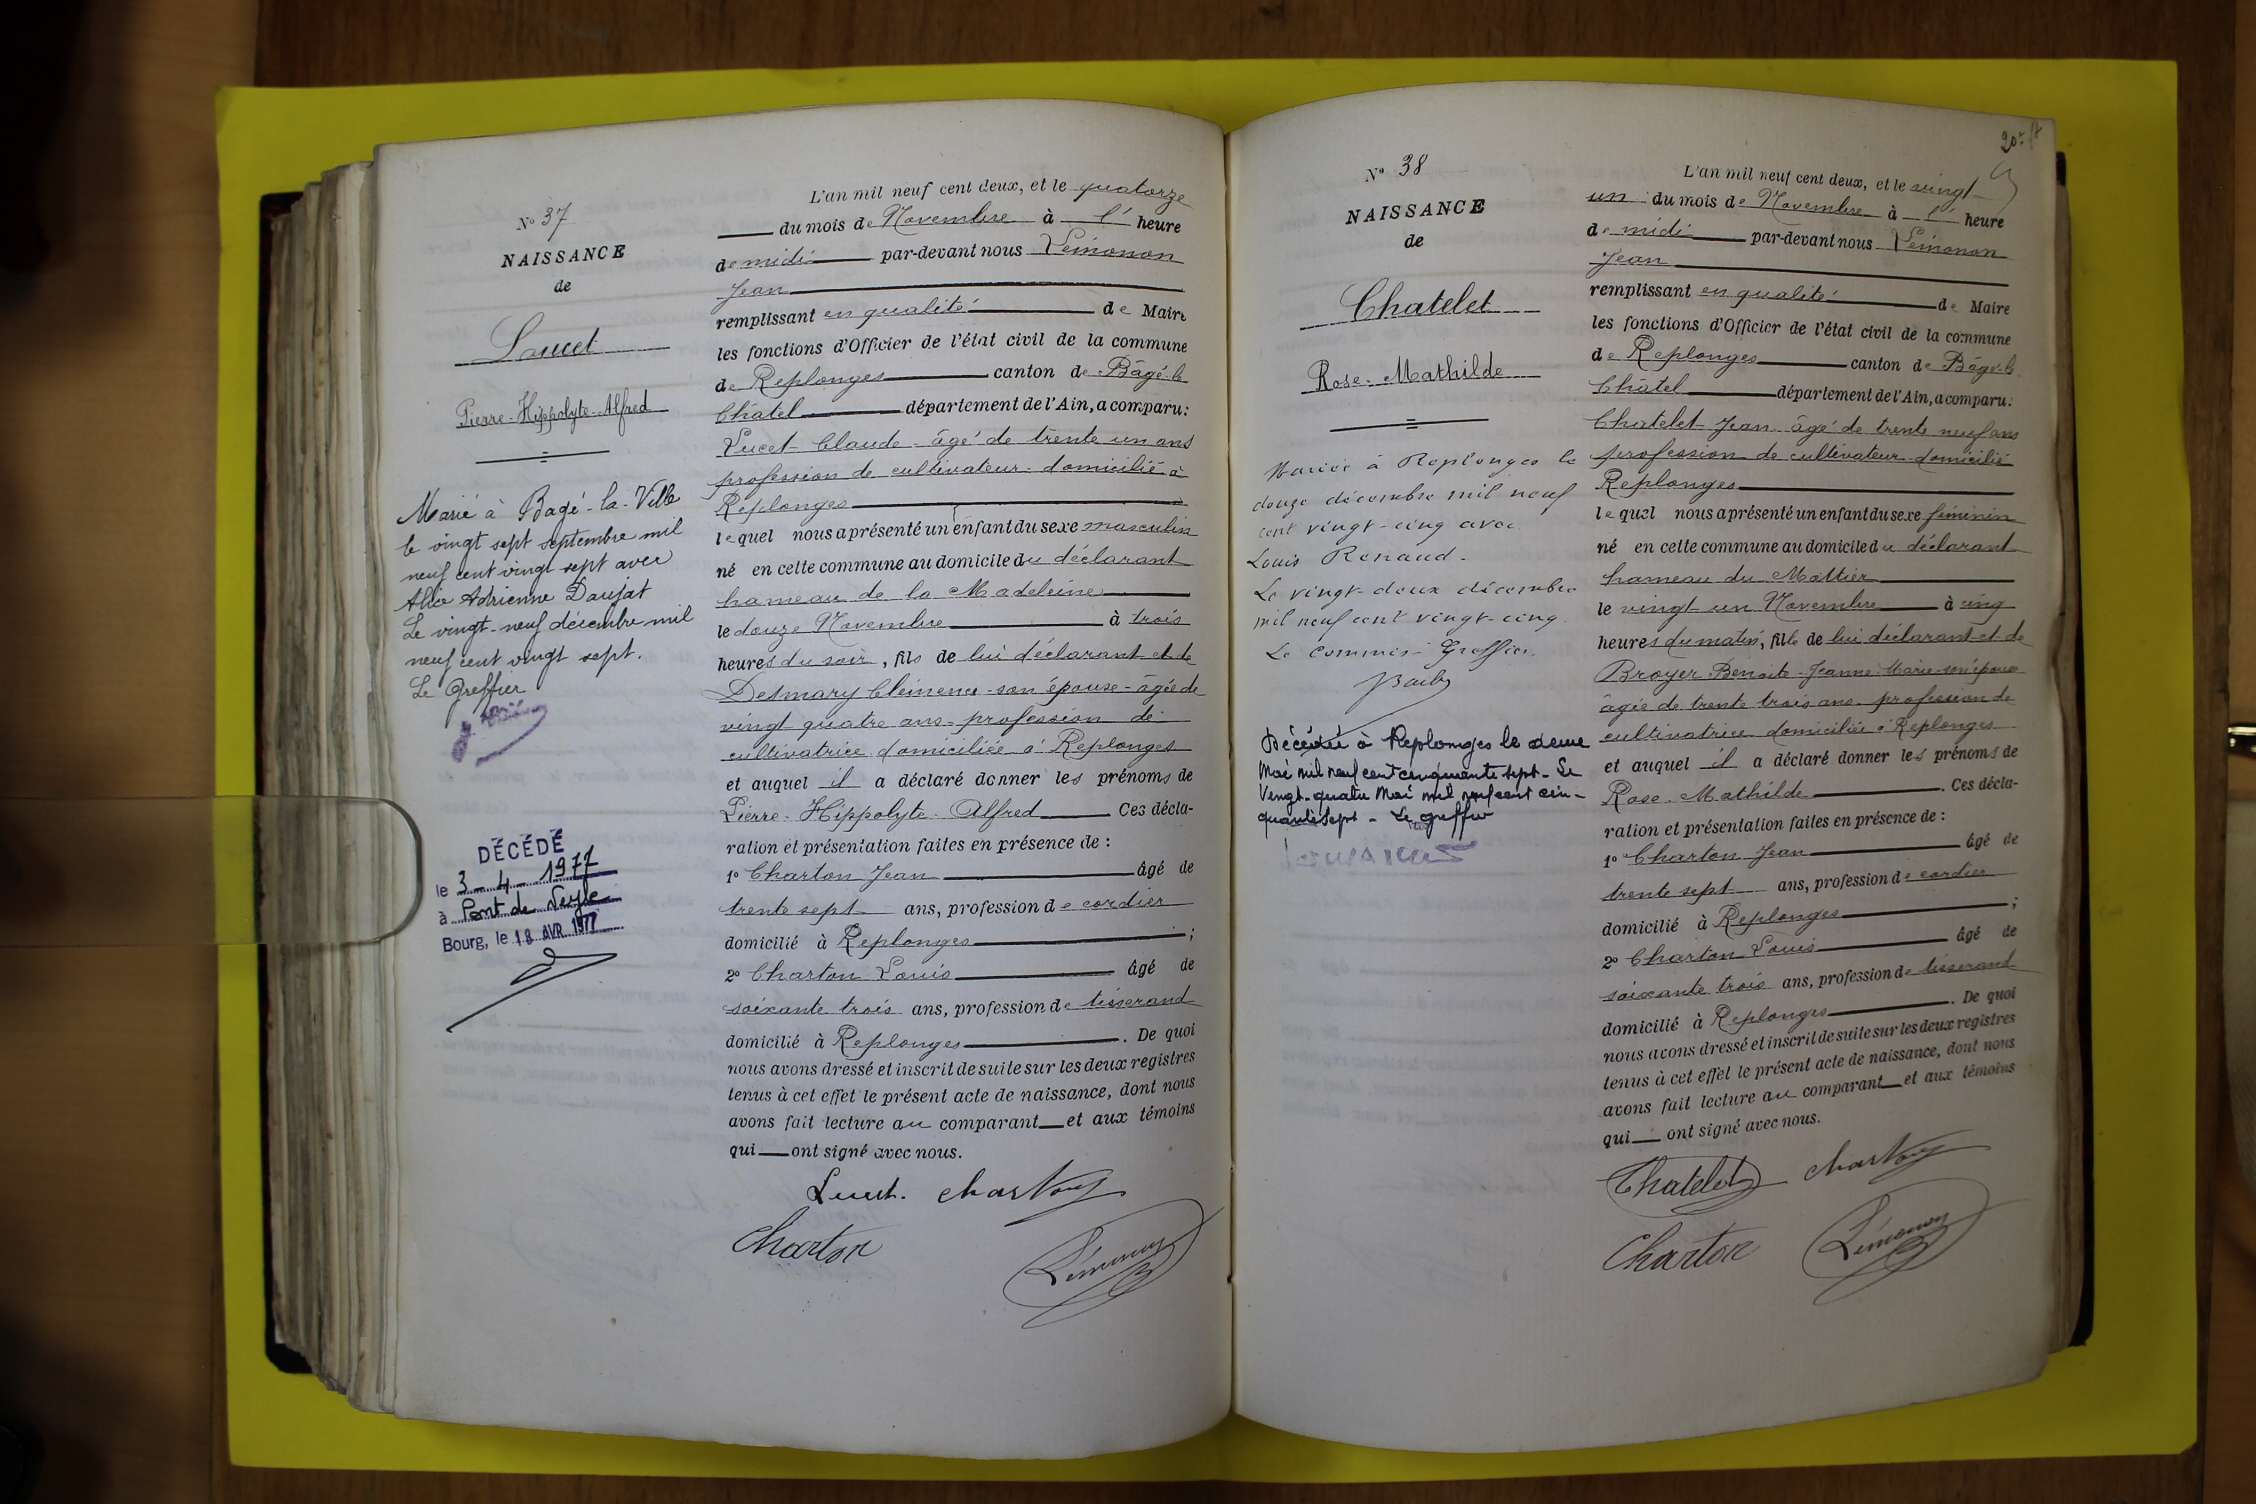 N° 37
NAISSANCE
de
Lucet
Pierre-Hippolyte-Alfred
Marié à Bagé-la-Ville
le vingt sept septembre mil
neuf cent vingt sept avec
Alice Adrienne Daujat
Le vingt-neuf décembre mil
neuf cent vingt sept.
Le Greffier
DÉCÉDÉ
le 3-4-1977
à Pont de Veyle
Bourg, le 18 AVR. 1977
L'an mil neuf cent deux, et le quatorze
du mois de Novembre à l' heure
de midi par-devant nous Lémonon
Jean
remplissant en qualité de Maire
les fonctions d'Officier de l'état civil de la commune
de Replonges canton de Bâgé-le
Châtel département de l'Ain, a comparu:
Lucet Claude âgé de trente un ans
profession de cultivateur domicilié à
Replonges
lequel nous a présenté un enfant du sexe masculin
né en cette commune au domicile du déclarant
hameau de la Madeleine
le douze Novembre à trois
heures du soir, fils de lui déclarant et de
Desmary Clémence son épouse âgée de
vingt quatre ans profession de
cultivatrice domiciliée à Replonges
et auquel il a déclaré donner les prénoms de
Pierre-Hippolyte-Alfred Ces décla-
ration et présentation faites en présence de :
1° Charton Jean âgé de
trente sept ans, profession de cordier
domicilié à Replonges ;
2° Charton Louis âgé de
soixante trois ans, profession de tisserand
domicilié à Replonges. De quoi
nous avons dressé et inscrit de suite sur les deux registres
tenus à cet effet le présent acte de naissance, dont nous
avons fait lecture au comparant et aux témoins
qui ont signé avec nous.
Lucet. Charton
Charton Lémonon
20
N° 38
NAISSANCE
de
Chatelet
Rose-Mathilde
Mariée à Replonges le
douze décembre mil neuf
cent vingt-cinq avec
Louis Renaud.
Le vingt-deux décembre
mil neuf cent vingt-cinq.
Le Commis-Greffier
Décédée à Replonges le
Mai mil neuf cent cinquante sept - Le
Vingt-quatre Mai mil neuf cent cin-
quante sept - Le greffier
L'an mil neuf cent deux, et le vingt
un du mois de Novembre à l' heure
de midi par-devant nous Lémonon
Jean
remplissant en qualité de Maire
les fonctions d'Officier de l'état civil de la commune
de Replonges canton de Bâgé-le
Châtel département de l'Ain, a comparu:
Chatelet Jean âgé de trente neuf ans
profession de cultivateur domicilié
Replonges
lequel nous a présenté un enfant du sexe féminin
né en cette commune au domicile du déclarant
hameau du Mattier
le vingt un Novembre à cinq
heures du matin, fille de lui déclarant et de
Broyer Benoite-Jeanne-Marie son épouse
âgée de trente trois ans profession de
cultivatrice domiciliée à Replonges
et auquel il a déclaré donner les prénoms de
Rose-Mathilde. Ces décla-
ration et présentation faites en présence de :
1° Charton Jean âgé de
trente sept ans, profession de cordier
domicilié à Replonges ;
2° Charton Louis âgé de
soixante trois ans, profession de tisserand
domicilié à Replonges. De quoi
nous avons dressé et inscrit de suite sur les deux registres
tenus à cet effet le présent acte de naissance, dont nous
avons fait lecture au comparant et aux témoins
qui ont signé avec nous.
Chatelet Charton
Charton Lémonon